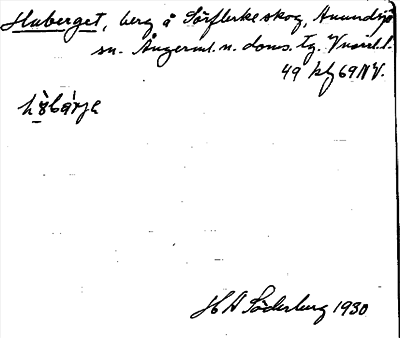 Huberget, berg å Sörflärke skog, Anundsjö
sn. Ångerml. n. doms. tg. Vnorrl. l.
49 kbl 69 NV.
hò̤bárje
H A Söderberg 1930